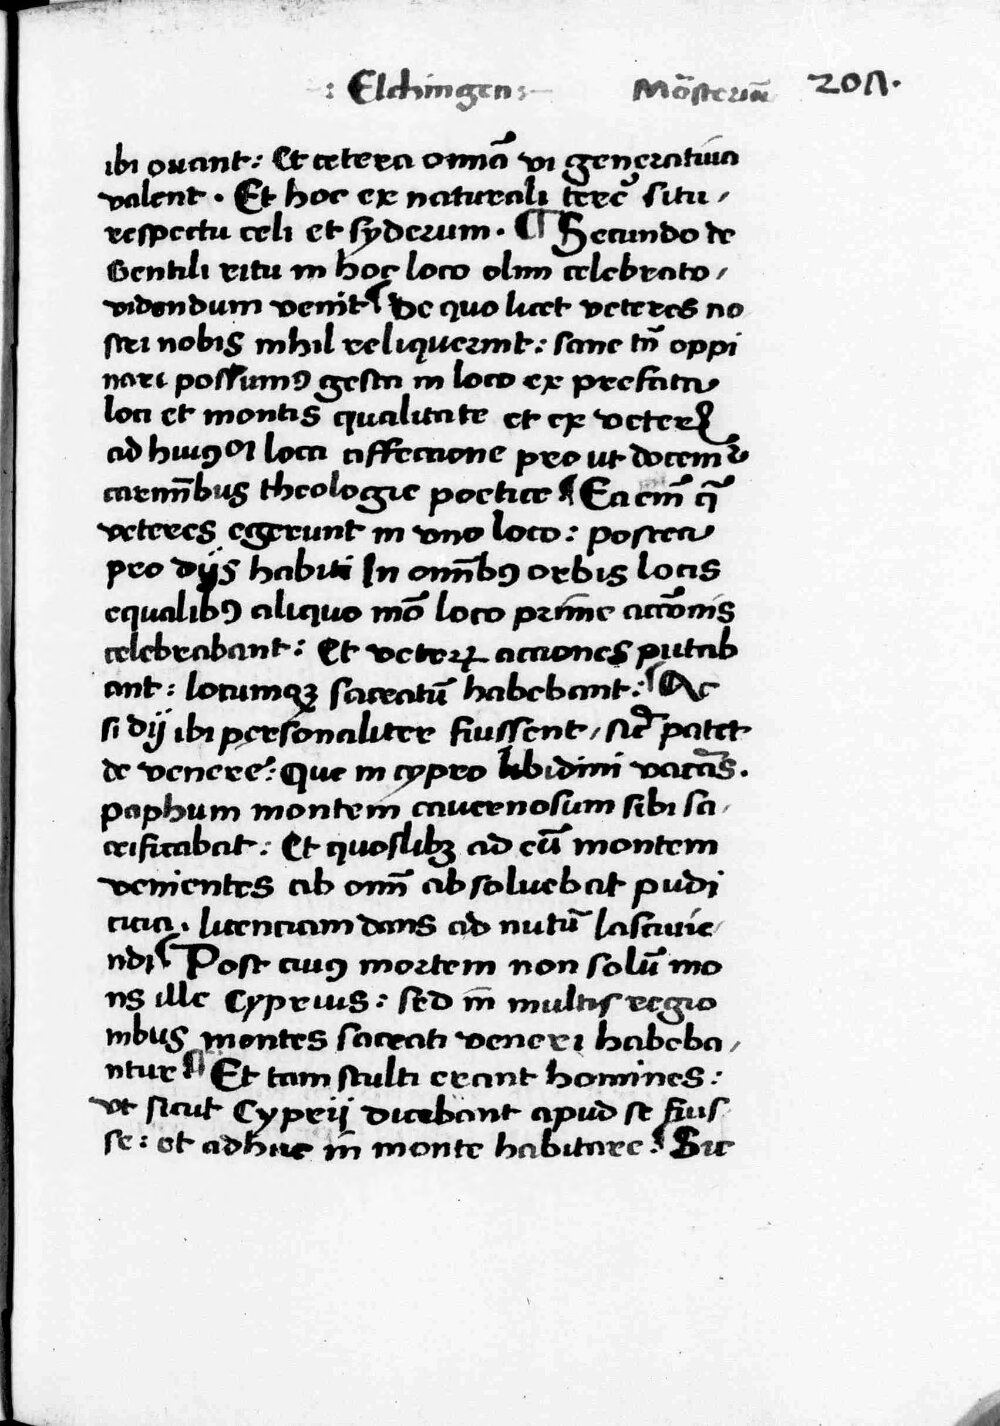 : Elchingen : Mo̅steriu̅ 207.
ibi ouant : Et cetera omia̅ vi generatiua
valent . Et hoc ex naturali terre̅ situ ,
respectu celi et syderum . ¶ Secundo de
Gentili ritu in hoc loco olim celebrato ,
videndum venit ¶ De quo licet veteres no
stri nobis nihil reliquerint : sane tn̅ oppi
nari possumꝰ gesta in loco ex prefata
loci et montis qualitate et ex veterꝝ
ad huiꝰ loci affectione pro ut docem᷑
carmi̅bus theologie poetice ¶ Ea eni̅ q̅
veteres egerunt in vno loco : postea
pro dijs habiti In omi̅bꝰ orbis locis
equalibꝰ aliquo mo̅ loco prime actio̅nis
celebrabant : Et veterꝝ acciones putab
ant : locumqꝫ sacratu̅ habebant : ¶ Ac
si dij ibi personaliter fuissent , sic̅ patet
de venere : Que in cypro libidini vaca̅s .
paphum montem cauernosum sibi sa ,
crificabat : Et quoslibꝫ ad eu̅ montem
venientes ab omi̅ absoluebat pudi
cicia . licenciam dans ad nutu̅ lasciuie
ndi ¶ Post cuiꝰ mortem non solu̅ mo
ns ille Cyprius : sed in̅ multis regio
nibus montes sacrati veneri habeba ,
ntur ¶ Et tam stulti erant homines :
vt sicut Cyprij dicebant apud se fuis
se : et adhuc in̅ monte habitare : ¶ Sic